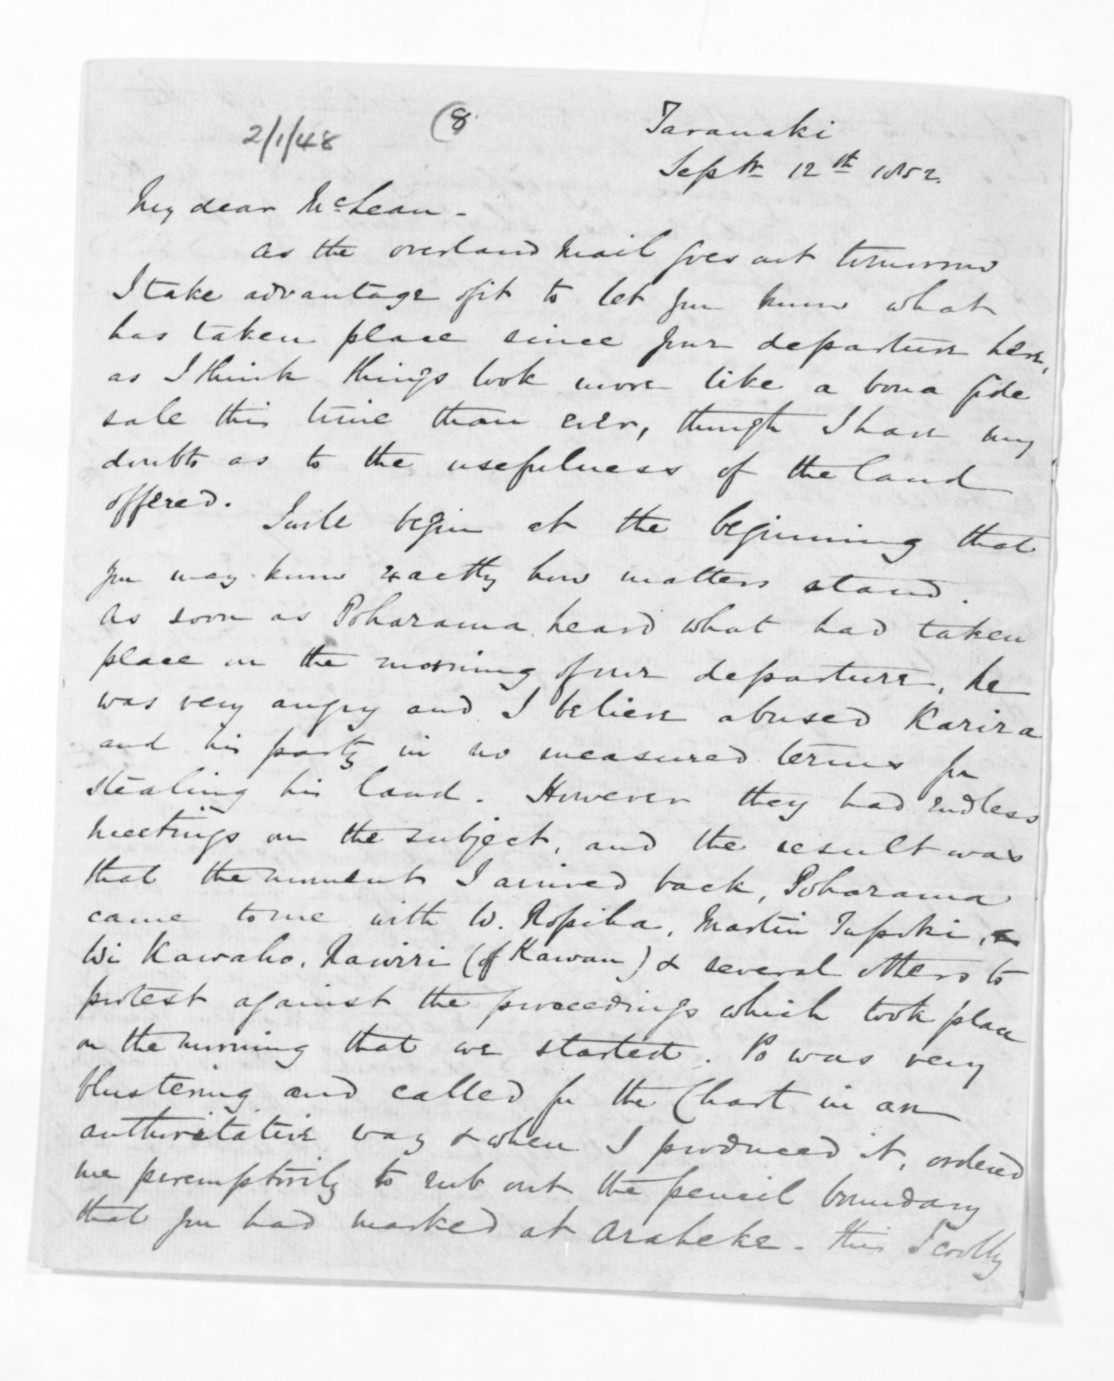 2/1/48
(8
Taranaki
Septr 12th 1852.
My dear McLean -
As the overland Mail goes out tomorrow
I take advantage of it to let you know what
has taken place since your departure here,
as I think things look more like a bona fide
sale this time than ever, though I have my
doubts as to the usefulness of the land
offered.
I will begin at the beginning that
you may know exactly how matters stand.
As soon as Poharama heard what had taken
place on the morning of our departure, he
was very angry and I believe abused Karira
and his party in no measured terms for
stealing his land. However they had endless
meetings on the subject, and the result was
that the moment I arrived back, Poharama
came to me with W. Ropiha, Martin Tupoki,
Wi Kawaho, Rawiri (of Kawau) & several others to
protest against the proceedings which took place
on the morning that we started. Po was very
blustering and called for the Chart in an
authoritative way & when I produced it, ordered
me peremptorily to rub out the pencil boundary
that you had marked at Araheke - this I coolly